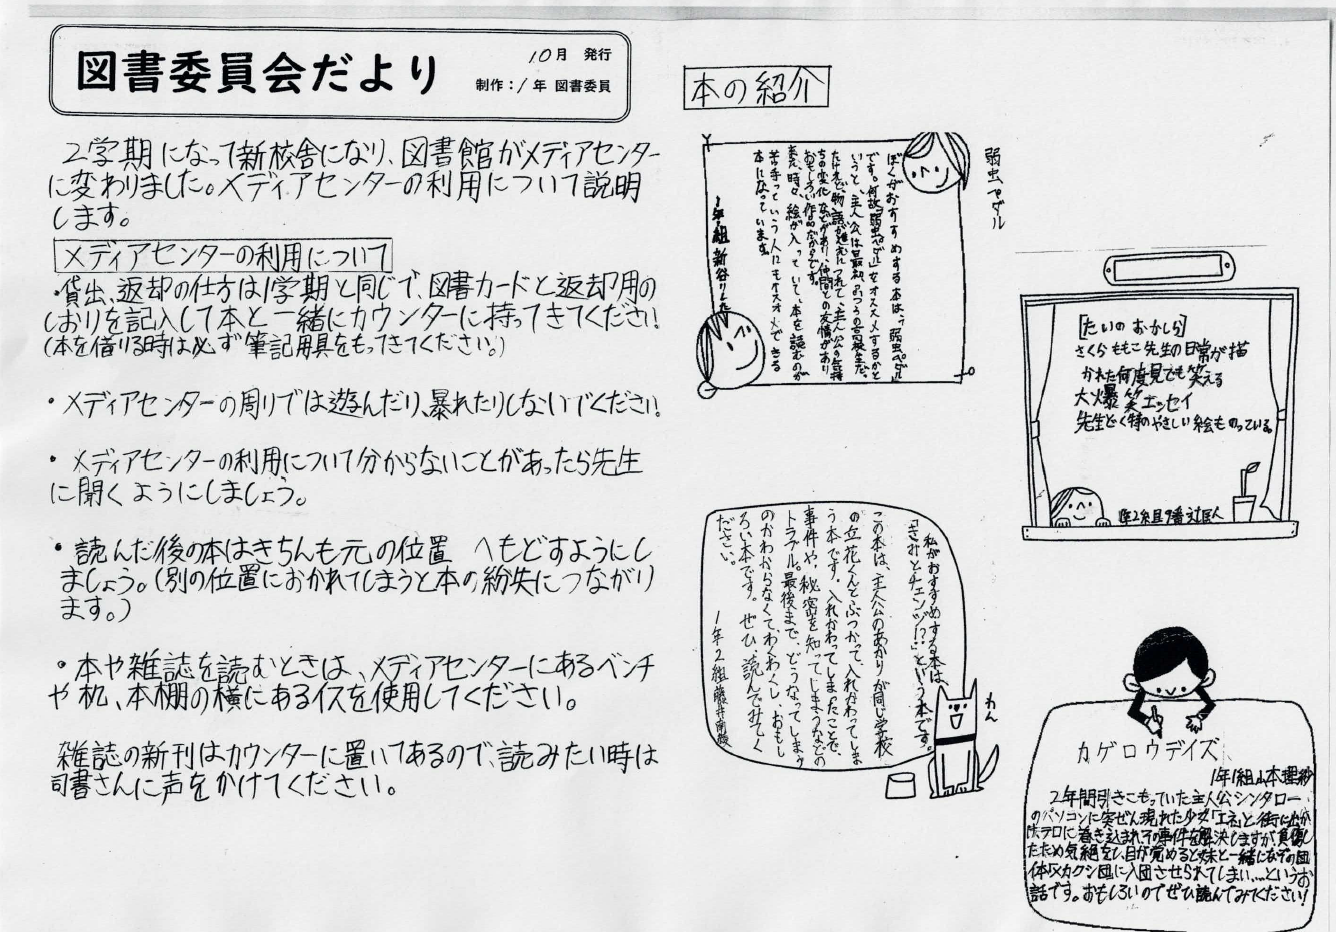 図書委員会だより
10月 発行
制作:1年 図書委員
2学期になって新校舎になり、図書館がメディアセンター
に変わりました。メディアセンターの利用について説明
します。
メディアセンターの利用について
・貸出、返却の仕方は1学期と同じで、図書カードと返却用の
しおりを記入して本と一緒にカウンターに持ってきてください
(本を借りる時は必ず筆記用具をもってきてください。)
・メディアセンターの周りでは遊んだり、暴れたりしないでください
・メディアセンターの利用について分からないことがあったら先生
に聞くようにしましょう。
・読んだ後の本はきちんも元の位置へもどすようにし
ましょう。(別の位置におかれてしまうと本の紛失につながり
ます。)
・本や雑誌を読むときは、メディアセンターにあるベンチ
や机、本棚の横にあるイスを使用してください。
雑誌の新刊はカウンターに置いてあるので、読みたい時は
司書さんに声をかけてください。
本の紹介
弱虫ペダル
ぼくがおすすめする本は、「弱虫ペダル」
です。何故「弱虫ペダル」をオススメするかと
いうと、主人公は最初、ふつうの高校生だっ
たけれど、物語が進むにつれて、主人公の気持
ちの変化などがあり、仲間との友情があり
おもしろい作品だからです。
また、時々、絵が入っていて、本を読むのが
苦手っていう人にもオススメできる
本になっています。
1年1組 新谷
[たいのおかしら]
さくらももこ先生の日常が描
かれた何度見ても笑える
大爆笑エッセイ
先生どく特のやさしい絵ものっている。
2組9番
私がおすすめする本は、
「きみとチェンジ!?」という本です。
この本は、主人公のあかりが同じ学校
の立花くんとぶつかって、入れかわってしま
う本です。入れかわってしまったことで、
事件や、秘密を知ってしまうなどの
トラブル。最後まで、どうなってしまう
のかわからなくてわくわくし、おもし
ろい本です。ぜひ、読んでみてく
ださい。
1年2組 藤井
わん
カゲロウデイズ
1年1組 山本理紗
2年間引きこもっていた主人公シンタロー
のパソコンに突ぜん現れた少女「エネ」と街に出か
けテロに巻き込まれその事件を解決しますが、負傷し
たため気絶をし、目が覚めると妹と一緒になぞの団
体「メカクシ団」に入団させられてしまい...というお
話です。おもしろいのでぜひ読んでみてください!